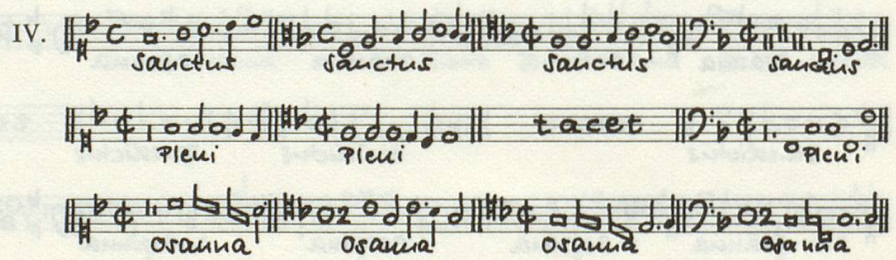 IV. Sanctus Sanctus Sanctus Sanctus
Pleni Pleni tacet Pleni
O2 O2
Osanna Osanna Osanna Osanna